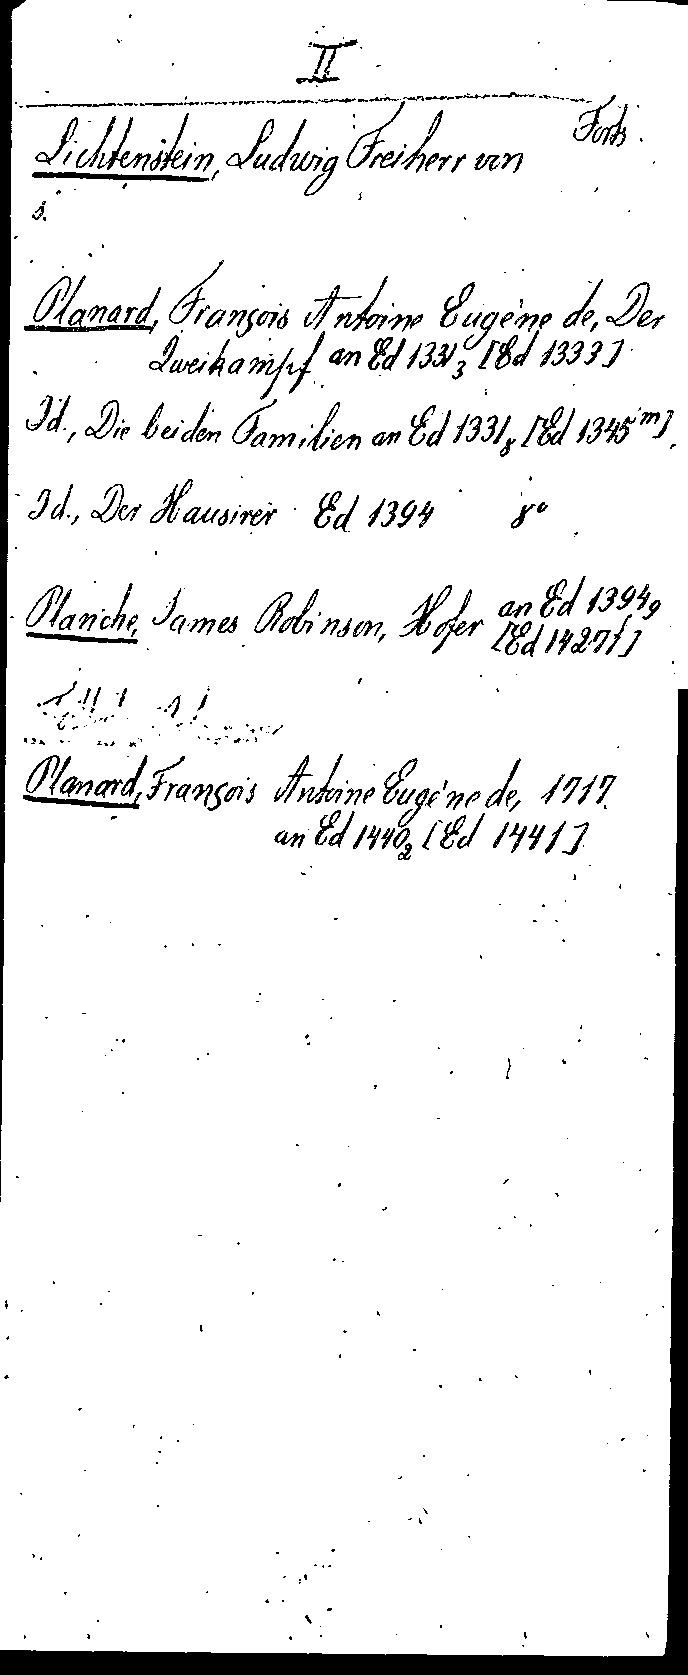 II
Forts.
Lichtenstein, Ludwig Freiherr von
s.
Planard, François Antoine Eugéne de, Der
Zweikampf an Ed 1331₃ [Ed 1333]
Id., Die beiden Familien an Ed 1331₈ [Ed 1345ᵐ]
Id., Der Hausirer Ed 1394 8°
Planché, James Robinson, Hofer an Ed 1394₉
[Ed 1427f]
Planard, François Antoine Eugéne de, 1717.
an Ed 1440₂ [Ed 1441]